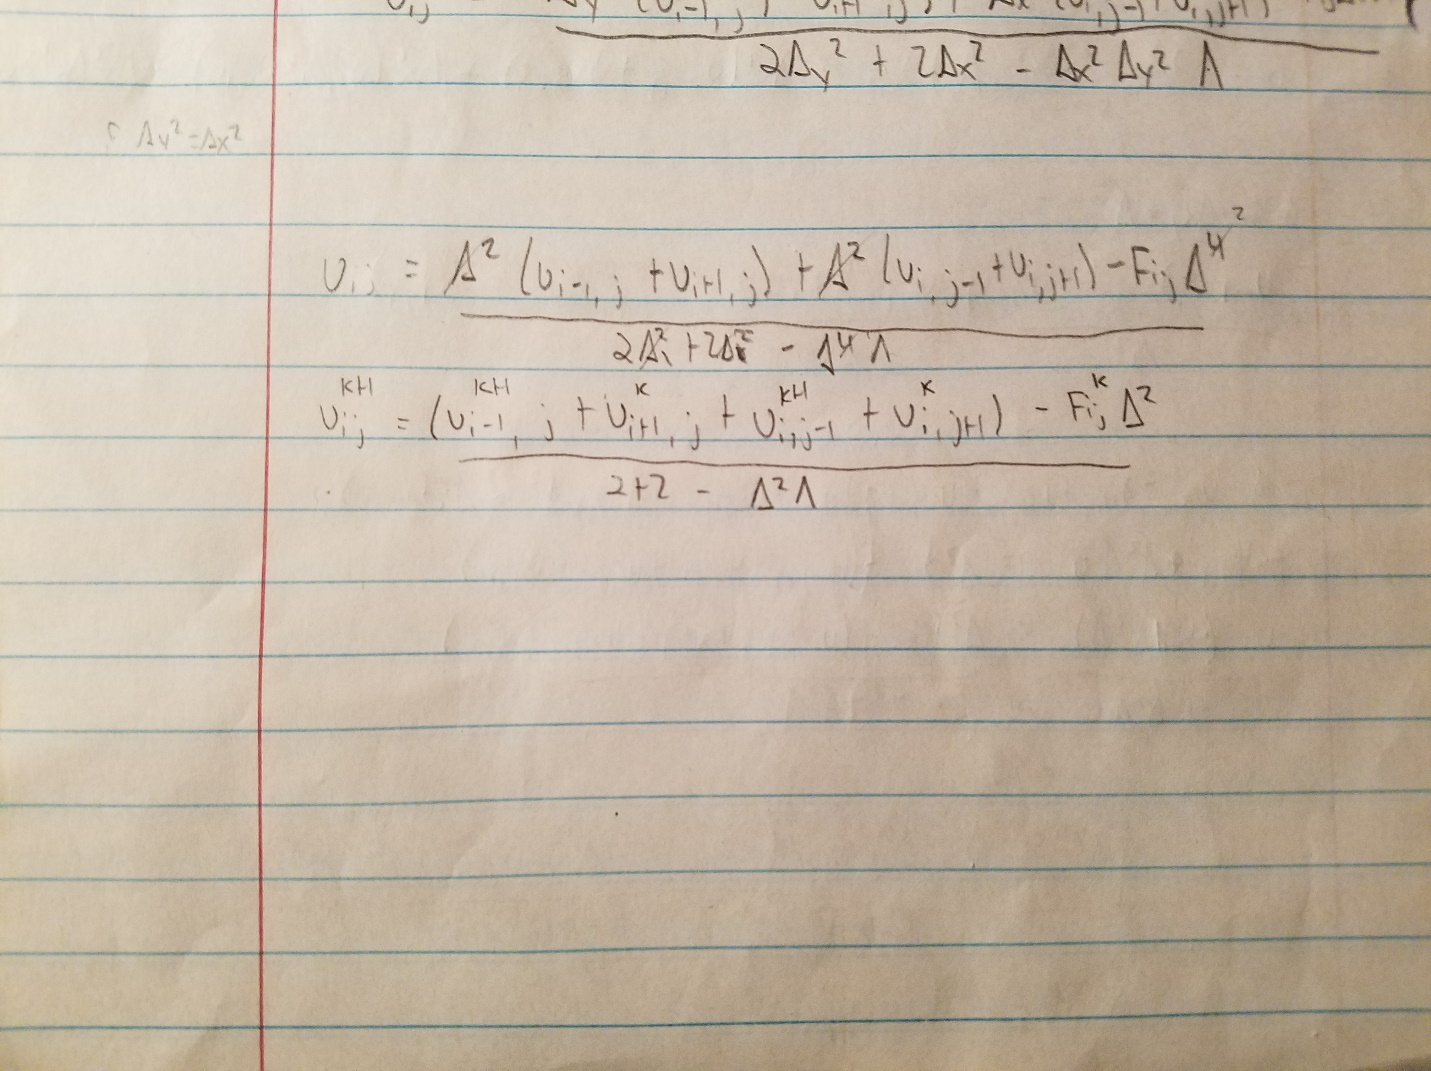 2Δy² + 2Δx² - Δx² Δy² Λ
Δy² = Δx²
U i,j = Δ² (U i-1, j + U i+1, j) + Δ² (U i, j-1 + U i, j+1) - F i,j Δ⁴ ²
2Δ² + 2Δ² - Δ⁴ Λ
U i,j ᴷ⁺¹ = (U i-1, j ᴷ⁺¹ + U i+1, j ᴷ + U i, j-1 ᴷ⁺¹ + U i, j+1 ᴷ) - F i,j ᴷ Δ²
2+2 - Δ²Λ